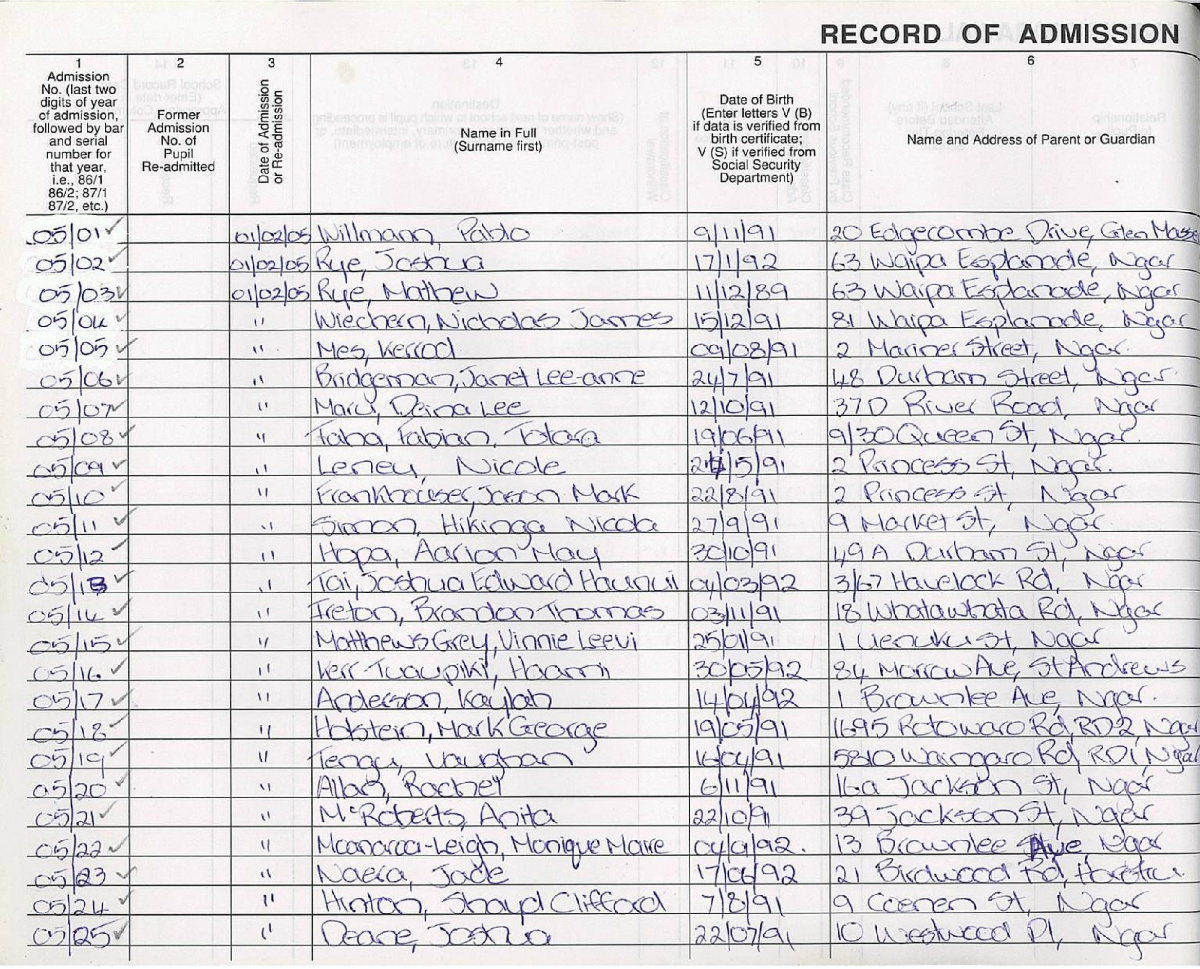 RECORD OF ADMISSION
1 2 3 4 5 6
Admission No. (last two digits of year of admission, followed by bar and serial number for that year, i.e., 86/1 86/2; 87/1 87/2, etc.)
Former Admission No. of Pupil Re-admitted
Date of Admission or Re-admission
Name in Full (Surname first)
Date of Birth (Enter letters V (B) if data is verified from birth certificate; V (S) if verified from Social Security Department)
Name and Address of Parent or Guardian
05/01 01/02/05 Willmann, Pablo 9/11/91 20 Edgecombe Drive, Glen Masse
05/02 01/02/05 Rye, Joshua 17/1/92 63 Waipa Esplanade, Ngar
05/03 01/02/05 Rye, Mathew 11/12/89 63 Waipa Esplanade, Ngar
05/04 " Wiechern, Nicholas James 15/12/91 81 Waipa Esplanade, Ngar
05/05 " Mes, Kerrod 09/08/91 2 Mariner Street, Ngar.
05/06 " Bridgeman, Janet Lee-anne 24/7/91 48 Durham Street, Ngar.
05/07 " Maru, Deina Lee 12/10/91 37D River Road, Ngar
05/08 " Taba, Fabian, Totara 19/06/91 9/30 Queen St, Ngar.
05/09 " Leney, Nicole /5/91 2 Princess St, Ngar.
05/10 " Frankhauser, Jason Mark 22/8/91 2 Princess St, Ngar
05/11 " Simon, Hikinga Nicola 27/9/91 9 Market St, Ngar
05/12 " Hopa, Aarion May 30/10/91 49A Durham St, Ngar
05/13 " Tai, Joshua Edward Haunui 04/03/92 3/67 Havelock Rd, Ngar
05/14 " Ireton, Brandon Thomas 03/11/91 18 Whatawhata Rd, Ngar
05/15 " Matthews Grey, Vinnie Leevi 25/01/91 1 Uenuku St, Ngar
05/16 " Kerr-Tuaupiki, Haami 30/05/92 84 Morrow Ave, St Andrews
05/17 " Anderson, Kaylah 14/04/92 1 Brownlee Ave, Ngar.
05/18 " Holstein, Mark George 19/05/91 1695 Rotowaro Rd, RD2, Ngar
05/19 " Tengu, Vaughan 16/04/91 Waingaro Rd, RD1, Ngar
05/20 " Alban, Rachel 6/11/91 16a Jackson St, Ngar
05/21 " McRoberts, Anita 22/10/91 39 Jackson St, Ngar
05/22 " Moanaroa-Leigh, Monique Maire 04/9/92. 13 Brownlee Ave Ngar
05/23 " Naera, Jade 17/06/92 21 Birdwood Rd,
05/24 " Hinton, Shayd Clifford 7/8/91 9 Coenen St, Ngar
05/25 " Deane, Joshua 22/07/91 10 Westwood Pl, Ngar